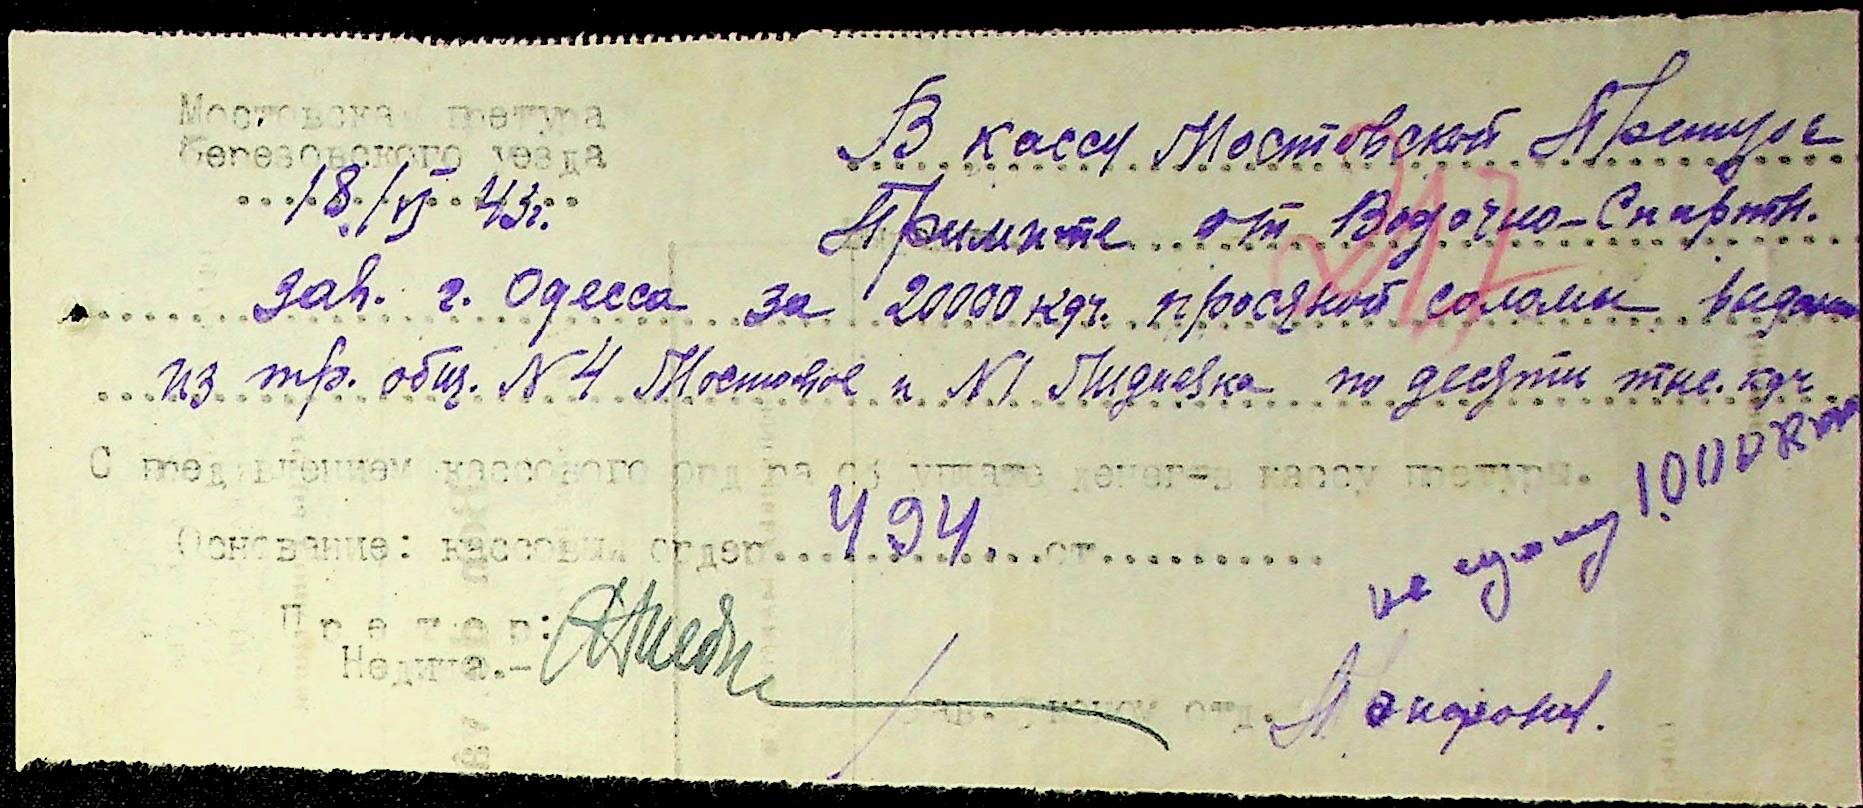 Мостовская претура
Березовского уезда
18/VI 43г.
В кассу Мостовской Претуры
217
Примите от Водочно-Спиртн.
зав. г. Одесса за 20000 кгр. просяной соломы выдан
из тр. общ. N 4 Мостовое и N 1 по десяти тыс. кгр
С предъявлением кассового орд ра об уплате денег-в кассу претуры.
на сумму 1.000
Основание: кассовый ордер 494 от
Претор:
Недича.-
отд.